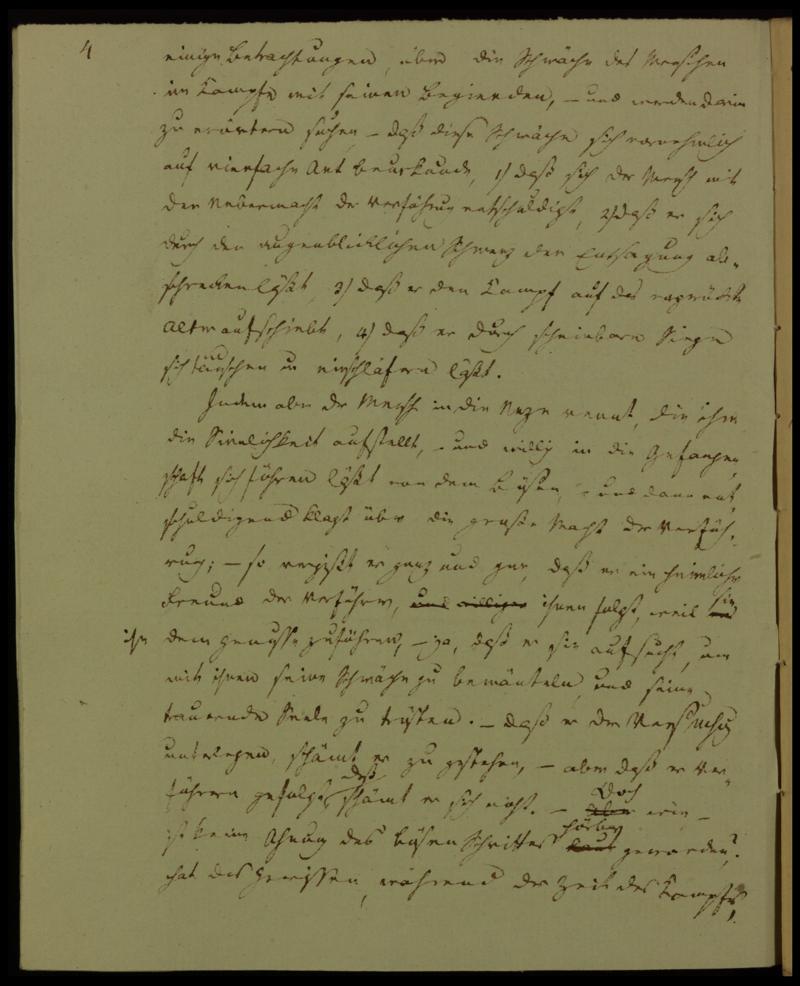 4
einige Betrachtungen, über die Schwäche des Menschen
im Kampfe mit seinen Begierden, – und werden darin
zu erörtern suchen – daß diese Schwäche sich vornehmlich
auf vierfache Art beurkunde, 1) daß sich der Mensch mit
der Uebermacht der Verführung entschuldigt, 2) daß er sich
durch den augenblicklichen Schmerz der Entsagung ab-
schrecken läßt, 3) daß er den Kampf auf das
Alter aufschiebt, 4) daß er durch scheinbare Siege
sich täuschen u einschläfern läßt.
Indem aber der Mensch in die Neze rennt, die ihm
die Sinnlichkeit aufstellt, – und willig in die Gefangen
schaft sich führen läßt von dem Bösen, – und dann ent,
schuldigend klagt über die große Macht der Verfüh,
rung; – so vergißt er ganz und gar, daß er ein heimlicher
Freund der Verführer, und williger ihnen folgt, weil sie
ihn dem Genusse zuführen, – ja, daß er sie aufsucht, um
mit ihnen seine Schwäche zu bemänteln, und seine
trauernde Seele zu trösten. – Daß er der Versuchung
unterlegen, schämt er zu gestehen, – aber daß er Ver-
führern gefolgt, deß schämt er sich nicht. – Doch aber wie –
ist keine Ahnung des bösen Schrittes hörbar laut geworden?
hat das Gewissen, während der Zeit des Kampfes,